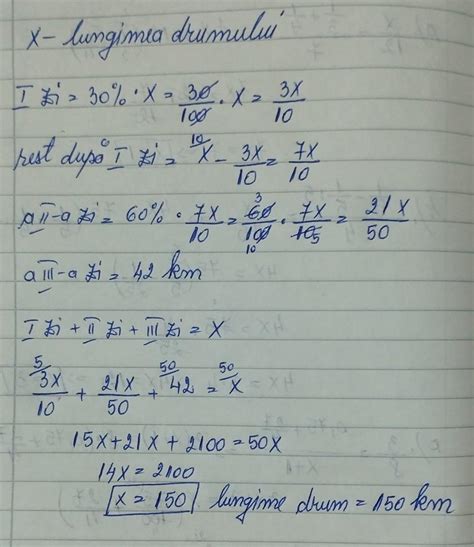 x - lungimea drumului
I zi = 30% · x = 30/100 · x = 3x/10
rest după I zi = 10/x - 3x/10 = 7x/10
a II-a zi = 60% · 7x/10 = 3 60/100 10 · 7x/10 5 = 21x/50
a III-a zi = 42 km
I zi + II zi + III zi = x
5/3x/10 + 21x/50 + 50/42 = 50/x
15x + 21x + 2100 = 50x
14x = 2100
x = 150 lungime drum = 150 km